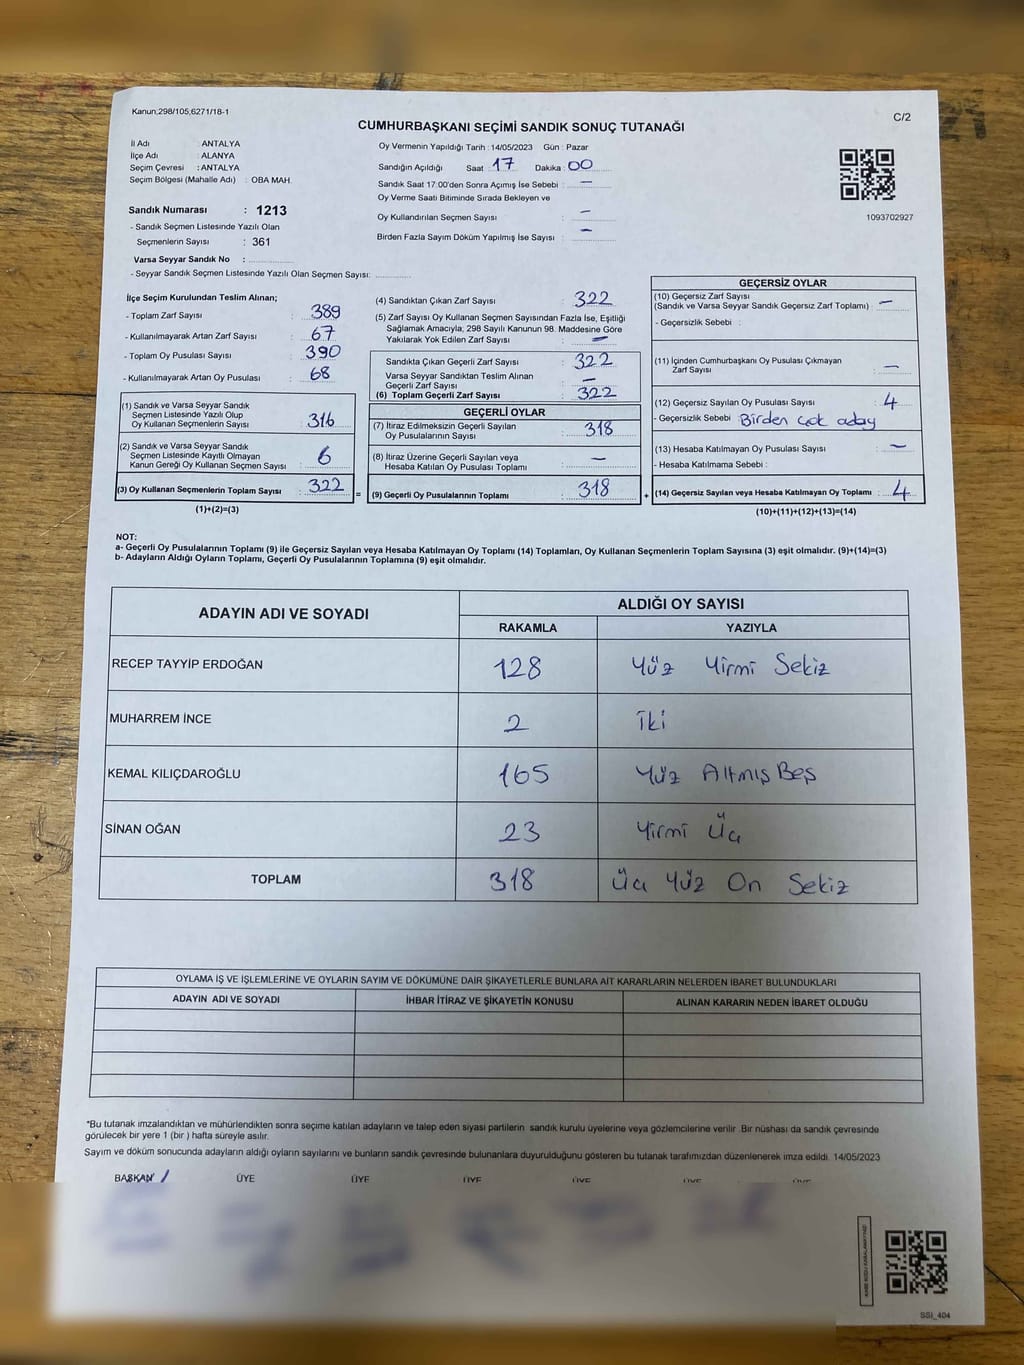 Kanun;298/105,6271/18-1
C/2
CUMHURBAŞKANI SEÇİMİ SANDIK SONUÇ TUTANAĞI
İl Adı : ANTALYA
İlçe Adı : ALANYA
Seçim Çevresi : ANTALYA
Seçim Bölgesi (Mahalle Adı) : OBA MAH.
Oy Vermenin Yapıldığı Tarih : 14/05/2023 Gün : Pazar
Sandığın Açıldığı Saat 17 Dakika : 00
Sandık Saat 17:00'den Sonra Açımış İse Sebebi : —
Oy Verme Saati Bitiminde Sırada Bekleyen ve
Oy Kullandırılan Seçmen Sayısı : —
Birden Fazla Sayım Döküm Yapılmış İse Sayısı : —
1093702927
Sandık Numarası : 1213
- Sandık Seçmen Listesinde Yazılı Olan
Seçmenlerin Sayısı : 361
Varsa Seyyar Sandık No :
- Seyyar Sandık Seçmen Listesinde Yazılı Olan Seçmen Sayısı:
İlçe Seçim Kurulundan Teslim Alınan;
- Toplam Zarf Sayısı : 389
- Kullanılmayarak Artan Zarf Sayısı : 67
- Toplam Oy Pusulası Sayısı : 390
- Kullanılmayarak Artan Oy Pusulası : 68
(1) Sandık ve Varsa Seyyar Sandık
Seçmen Listesinde Yazılı Olup
Oy Kullanan Seçmenlerin Sayısı : 316
(2) Sandık ve Varsa Seyyar Sandık
Seçmen Listesinde Kayıtlı Olmayan
Kanun Gereği Oy Kullanan Seçmen Sayısı : 6
(3) Oy Kullanan Seçmenlerin Toplam Sayısı : 322
(1)+(2)=(3)
(4) Sandıktan Çıkan Zarf Sayısı : 322
(5) Zarf Sayısı Oy Kullanan Seçmen Sayısından Fazla İse, Eşitliği
Sağlamak Amacıyla; 298 Sayılı Kanunun 98. Maddesine Göre
Yakılarak Yok Edilen Zarf Sayısı : —
Sandıkta Çıkan Geçerli Zarf Sayısı : 322
Varsa Seyyar Sandıktan Teslim Alınan
Geçerli Zarf Sayısı : —
(6) Toplam Geçerli Zarf Sayısı : 322
GEÇERLİ OYLAR
(7) İtiraz Edilmeksizin Geçerli Sayılan
Oy Pusulalarının Sayısı : 318
(8) İtiraz Üzerine Geçerli Sayılan veya
Hesaba Katılan Oy Pusulası Toplamı : —
= (9) Geçerli Oy Pusulalarının Toplamı : 318 +
GEÇERSİZ OYLAR
(10) Geçersiz Zarf Sayısı
(Sandık ve Varsa Seyyar Sandık Geçersiz Zarf Toplamı) : —
- Geçersizlik Sebebi :
(11) İçinden Cumhurbaşkanı Oy Pusulası Çıkmayan
Zarf Sayısı : —
(12) Geçersiz Sayılan Oy Pusulası Sayısı : 4
- Geçersizlik Sebebi : Birden çok aday
(13) Hesaba Katılmayan Oy Pusulası Sayısı : —
- Hesaba Katılmama Sebebi :
(14) Geçersiz Sayılan veya Hesaba Katılmayan Oy Toplamı : 4
(10)+(11)+(12)+(13)=(14)
NOT:
a- Geçerli Oy Pusulalarının Toplamı (9) ile Geçersiz Sayılan veya Hesaba Katılmayan Oy Toplamı (14) Toplamları, Oy Kullanan Seçmenlerin Toplam Sayısına (3) eşit olmalıdır. (9)+(14)=(3)
b- Adayların Aldığı Oyların Toplamı, Geçerli Oy Pusulalarının Toplamına (9) eşit olmalıdır.
ADAYIN ADI VE SOYADI ALDIĞI OY SAYISI
RAKAMLA YAZIYLA
RECEP TAYYİP ERDOĞAN 128 Yüz Yirmi Sekiz
MUHARREM İNCE 2 İki
KEMAL KILIÇDAROĞLU 165 Yüz Altmış Beş
SİNAN OĞAN 23 Yirmi Üç
TOPLAM 318 Üç Yüz On Sekiz
OYLAMA İŞ VE İŞLEMLERİNE VE OYLARIN SAYIM VE DÖKÜMÜNE DAİR ŞİKAYETLERLE BUNLARA AİT KARARLARIN NELERDEN İBARET BULUNDUKLARI
ADAYIN ADI VE SOYADI İHBAR İTİRAZ VE ŞİKAYETİN KONUSU ALINAN KARARIN NEDEN İBARET OLDUĞU
*Bu tutanak imzalandıktan ve mühürlendikten sonra seçime katılan adayların ve talep eden siyasi partilerin sandık kurulu üyelerine veya gözlemcilerine verilir. Bir nüshası da sandık çevresinde
görülecek bir yere 1 (bir ) hafta süreyle asılır.
Sayım ve döküm sonucunda adayların aldığı oyların sayılarını ve bunların sandık çevresinde bulunanlara duyurulduğunu gösteren bu tutanak tarafımızdan düzenlenerek imza edildi. 14/05/2023
BAŞKAN ÜYE ÜYE ÜYE ÜYE ÜYE ÜYE
SSI_404